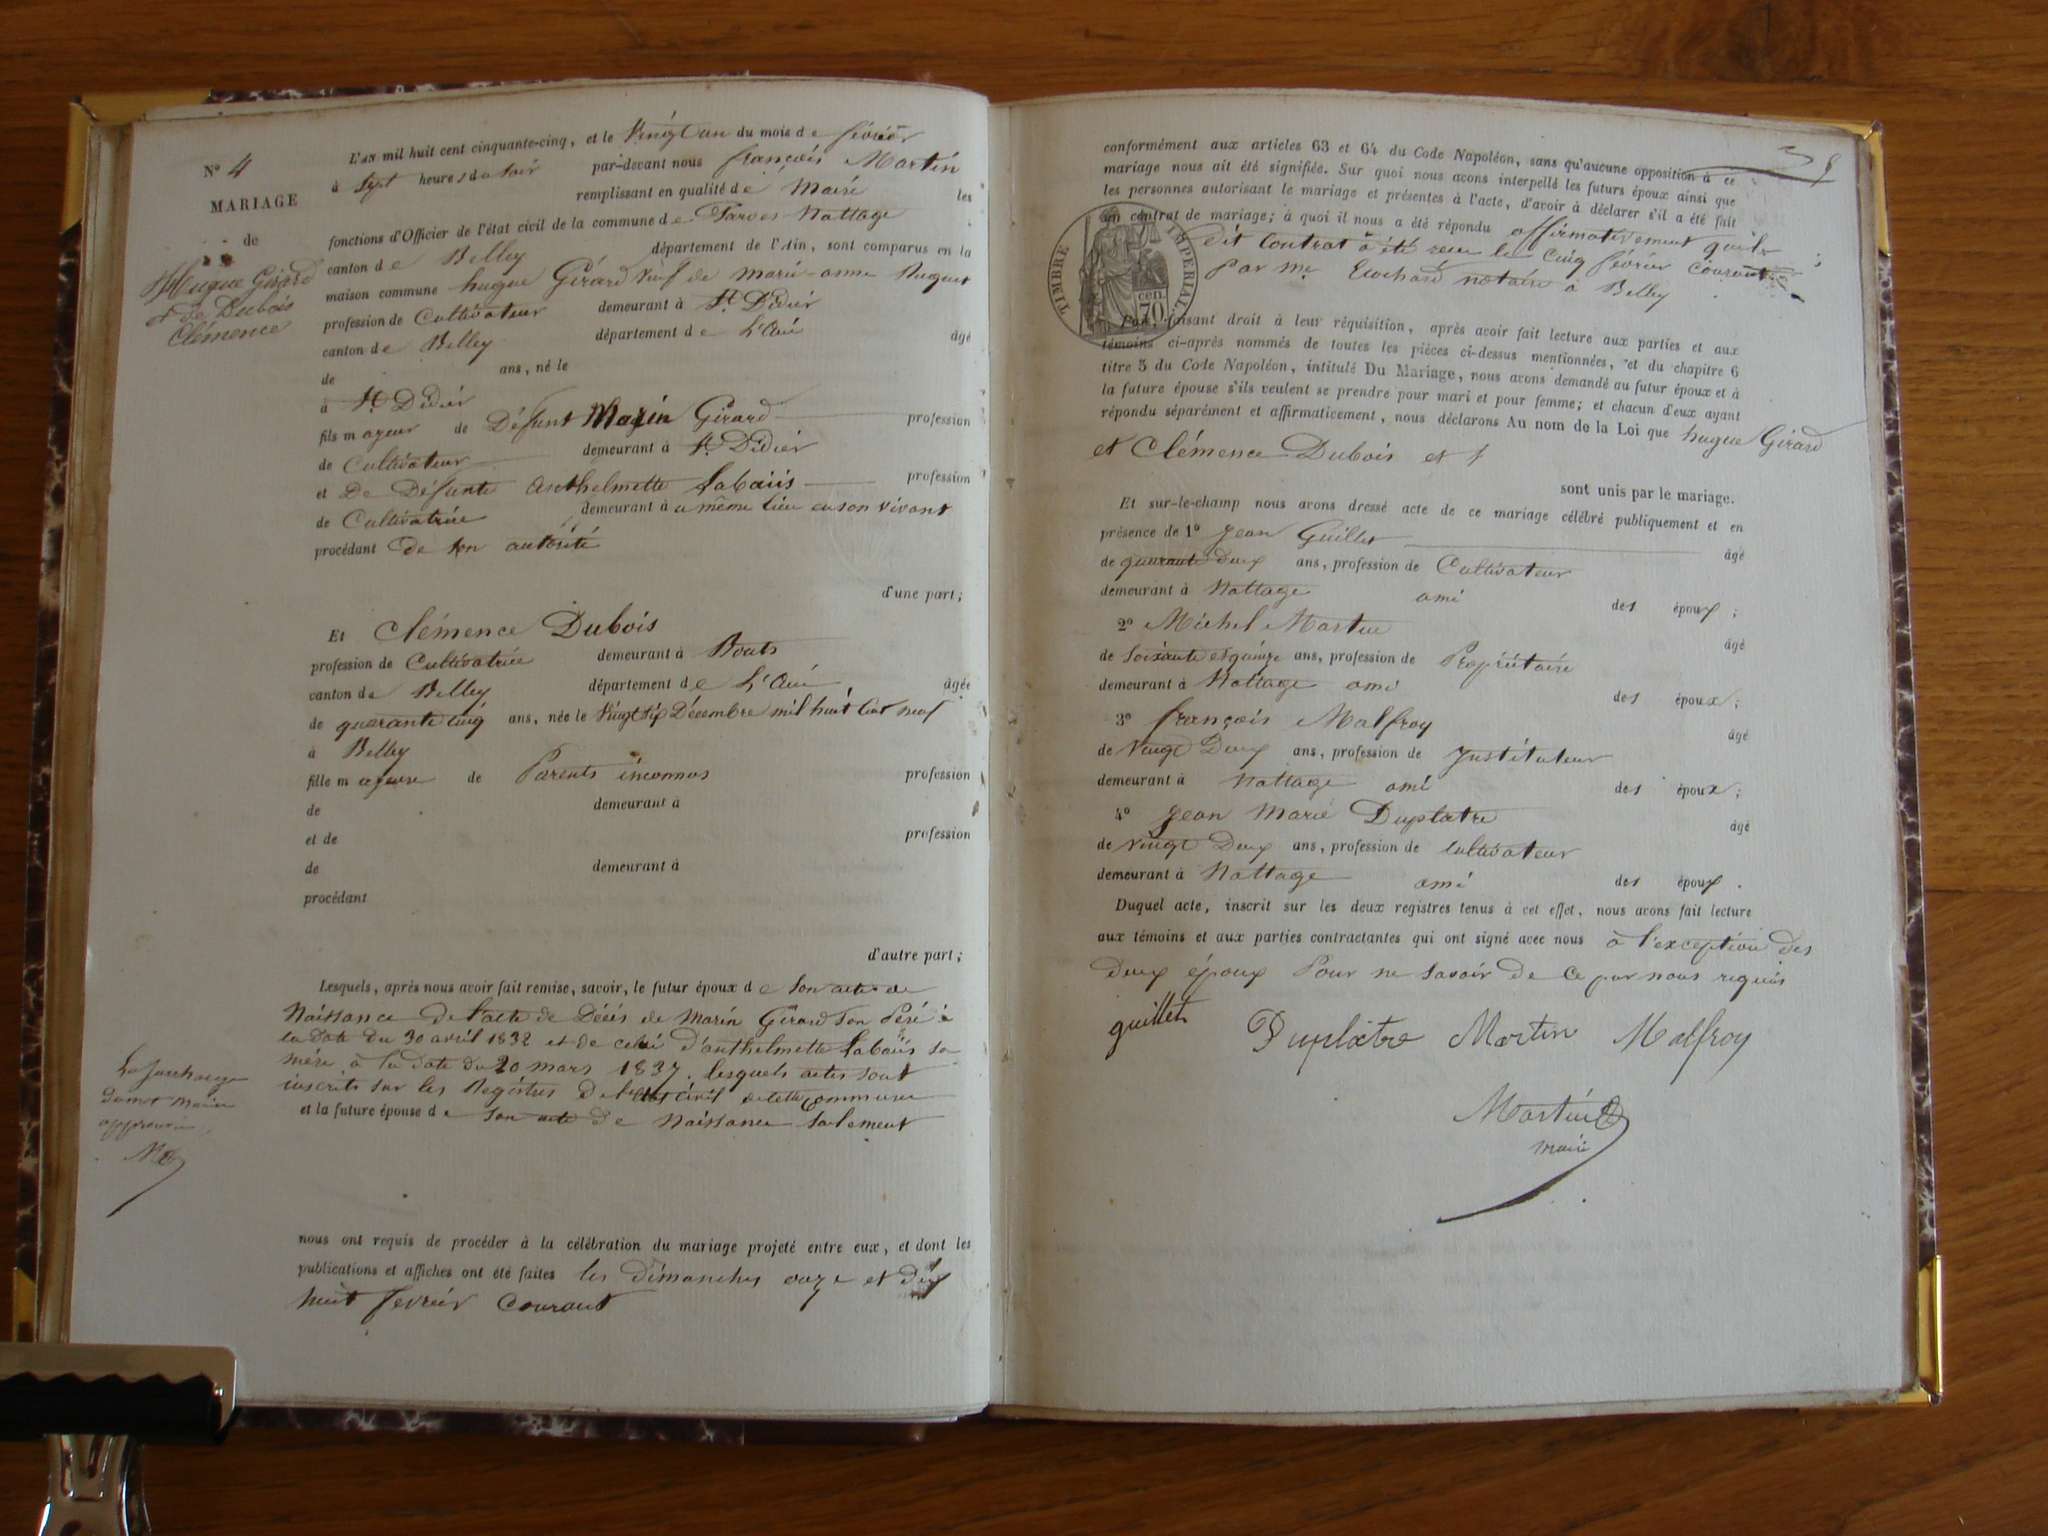 N° 4
MARIAGE
de
Hugue Girard
et de Dubois
Clémence
L'AN mil huit cent cinquante-cinq, et le Vingt un du mois de février
à Sept heures du Soir par-devant nous françois Martin
remplissant en qualité de Maire les
fonctions d'Officier de l'état civil de la commune de Parves Nattage
canton de Belley département de l'Ain, sont comparus en la
maison commune hugue Girard veuf de marie-anne Huguet
profession de Cultivateur demeurant à St Didier
canton de Belley département de L'Ain âgé
de ans, né le
à St Didier
fils majeur de Défunt Marin Girard profession
de Cultivateur demeurant à St Didier
et De Défunte Anthelmette Labaüs profession
de Cultivatrice demeurant à u même lieu en son vivant
procédant de son autorité
d'une part;
Et Clémence Dubois
profession de Cultivatrice demeurant à Bons
canton de Belley département de L'Ain âgée
de quarante cinq ans, née le Vingt six Décembre mil huit cent neuf
à Belley
fille majeure de Parents inconnus profession
de demeurant à
et de profession
de demeurant à
procédant
d'autre part;
Lesquels, après nous avoir fait remise, savoir, le futur époux de son acte de
Naissance De l'acte de Décès de Marin Girard Son Père à
la Date du 30 avril 1832 et de celui d'anthelmette Labaüs sa
mère à la date du 20 mars 1837. lesquels actes sont
inscrits sur les Registres De l'état civil de cette Commune
et la future épouse de Son acte de Naissance Seulement
La Surcharge
du mot Marin
approuvée
nous ont requis de procéder à la célébration du mariage projeté entre eux, et dont les
publications et affiches ont été faites les Dimanches onze et dix
huit fevrier Courant
conformément aux articles 63 et 64 du Code Napoléon, sans qu'aucune opposition à ce
mariage nous ait été signifiée. Sur quoi nous avons interpellé les futurs époux ainsi que
les personnes autorisant le mariage et présentes à l'acte, d'avoir à déclarer s'il a été fait
un contrat de mariage; à quoi il nous a été répondu affirmativement que le
dit Contrat a été recu le Cinq février Courant
par Me notaire à Belley
TIMBRE IMPERIAL
70 cen.
faisant droit à leur réquisition, après avoir fait lecture aux parties et aux
témoins ci-après nommés de toutes les pièces ci-dessus mentionnées, et du chapitre 6
titre 5 du Code Napoléon, intitulé Du Mariage, nous avons demandé au futur époux et à
la future épouse s'ils veulent se prendre pour mari et pour femme; et chacun d'eux ayant
répondu séparément et affirmativement, nous déclarons Au nom de la Loi que hugue Girard
et Clémence Dubois
sont unis par le mariage.
Et sur-le-champ nous avons dressé acte de ce mariage célébré publiquement et en
présence de 1° Jean Guillet âgé
de quarante Deux ans, profession de Cultivateur
demeurant à Nattage ami des époux;
2° Michel Martin âgé
de Soixante et quinze ans, profession de Propriétaire
demeurant à Nattage ami des époux;
3° françois Malfroy âgé
de Vingt Deux ans, profession de Instituteur
demeurant à Nattage ami des époux;
4° Jean Marie Duplatre âgé
de Vingt Deux ans, profession de Cultivateur
demeurant à Nattage ami des époux.
Duquel acte, inscrit sur les deux registres tenus à cet effet, nous avons fait lecture
aux témoins et aux parties contractantes qui ont signé avec nous à l'exception des
Deux époux Pour ne savoir de ce par nous requis
guillet Duplatre Martin Malfroy
Martin
maire